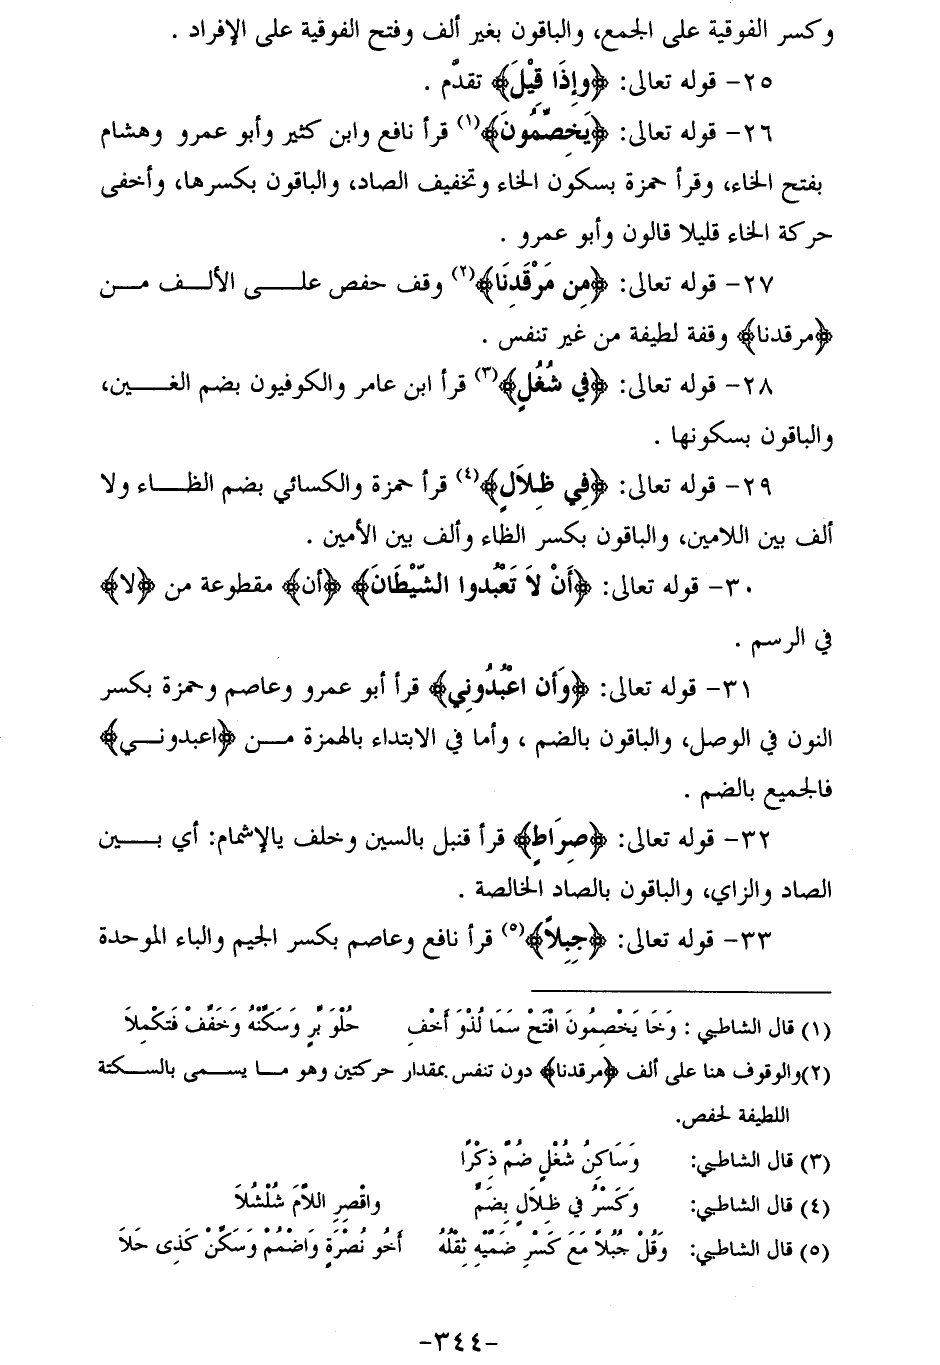 وكسر الفوقية على الجمع، والباقون بغير ألف وفتح الفوقية على الإفراد .
٢٥- قوله تعالى: ﴿وإِذَا قِيْلَ﴾ تقدَّم .
٢٦- قوله تعالى: ﴿يَخِصِّمُونَ﴾(١) قرأ نافع وابن كثير وأبو عمرو وهشام
بفتح الخاء، وقرأ حمزة بسكون الخاء وتخفيف الصاد، والباقون بكسرها، وأخفى
حركة الخاء قليلا قالون وأبو عمرو .
٢٧- قوله تعالى: ﴿مِن مَرْقَدِنَا﴾(٢) وقف حفص علـــى الألـــف مـــن
﴿مرقدنا﴾ وقفة لطيفة من غير تنفس .
٢٨- قوله تعالى: ﴿في شُغُلٍ﴾(٣) قرأ ابن عامر والكوفيون بضم الغـــين،
والباقون بسكونها .
٢٩- قوله تعالى: ﴿فِي ظِلاَلٍ﴾(٤) قرأ حمزة والكسائي بضم الظـــاء ولا
ألف بين اللامين، والباقون بكسر الظاء وألف بين الأمين .
٣٠- قوله تعالى: ﴿أَنْ لاَ تَعْبُدوا الشَّيْطَانَ﴾ ﴿أن﴾ مقطوعة من ﴿لا﴾
في الرسم .
٣١- قوله تعالى: ﴿وَأَن اعْبُدُونِي﴾ قرأ أبو عمرو وعاصم وحمزة بكسر
النون في الوصل، والباقون بالضم ، وأما في الابتداء بالهمزة مـــن ﴿اعبدونـــي﴾
فالجميع بالضم .
٣٢- قوله تعالى: ﴿صِرَاطٍ﴾ قرأ قنبل بالسين وخلف يالإشمام: أي بـــين
الصاد والزاي، والباقون بالصاد الخالصة .
٣٣- قوله تعالى: ﴿جِبِلاً﴾(٥) قرأ نافع وعاصم بكسر الجيم والباء الموحدة
(١) قال الشاطبي : وَخَا يَخْصِمُونَ افْتَحْ سَمَا لُذْوَ أَخْفِ حُلْوَ بَرٍّ وَسَكِّنْهُ وَخَفِّفْ فَتَكْمِلاَ
(٢)والوقوف هنا على ألف ﴿مرقدنا﴾ دون تنفس بمقدار حركتين وهو مـا يسـمى بالسـكتة
اللطيفة لحفص.
(٣) قال الشاطبي: وَسَاكِنُ شُغْلٍ ضُمَّ ذِكْرًا
(٤) قال الشاطبي: وَكَسْرُ في ظِلاَلٍ بِضَمِّ واقْصِرِ اللاَّمَ شُلْشُلاَ
(٥) قال الشاطبي: وَقُلْ جُبُلاً مَعَ كَسْرِ ضَمَّيْهِ ثِقْلُهُ أَخُو نُصْرَةٍ وَاضْمُمْ وَسَكِّنْ كَذِى حَلاَ
-٣٤٤-